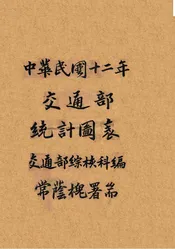 中華民國十二年
交通部
統計圖表
交通部綜核科編
常蔭槐署簽